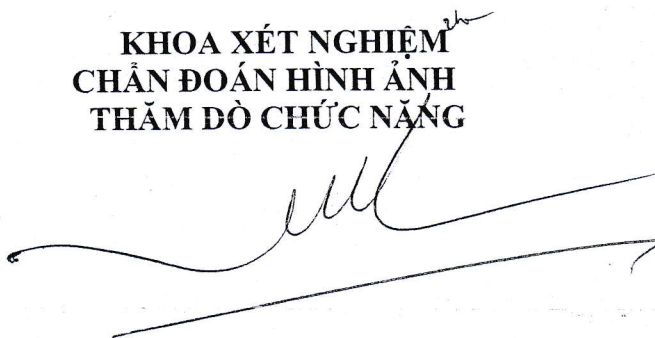 KHOA XÉT NGHIỆM
CHẨN ĐOÁN HÌNH ẢNH
THĂM DÒ CHỨC NĂNG